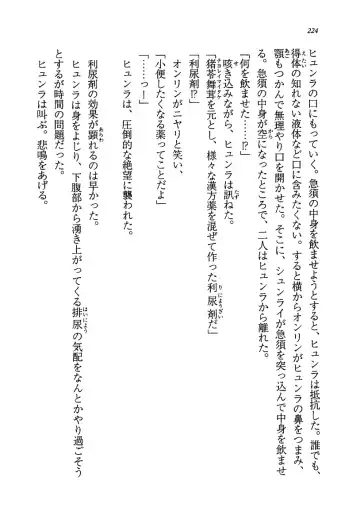 224
ヒュンラの口にもっていく。急須の中身を飲ませようとすると、ヒュンラは抵抗した。誰でも、
得体の知れない液体など口に含みたくない。すると横からオンリンがヒュンラの鼻をつまみ、
顎もつかんで無理やり口を開かせた。そこに、シュンライが急須を突っ込んで中身を飲ませ
る。急須の中身が空になったところで、二人はヒュンラから離れた。
「何を飲ませた……!?」
咳き込みながら、ヒュンラは訊ねた。
「猪苓舞茸を元とし、様々な漢方薬を混ぜて作った利尿剤だ」
「利尿剤!?」
オンリンがニヤリと笑い、
「小便したくなる薬ってことだよ」
「……っ——」
ヒュンラは、圧倒的な絶望に襲われた。
利尿剤の効果が顕れるのは早かった。
ヒュンラは身をよじり、下腹部から湧き上がってくる排尿の気配をなんとかやり過ごそう
とするが時間の問題だった。
ヒュンラは叫ぶ。悲鳴をあげる。